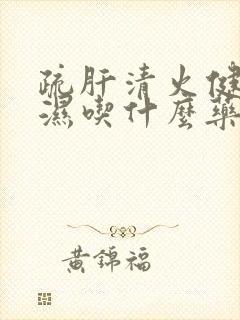 疏肝清火健
濕喫什麼藥
黃錦福